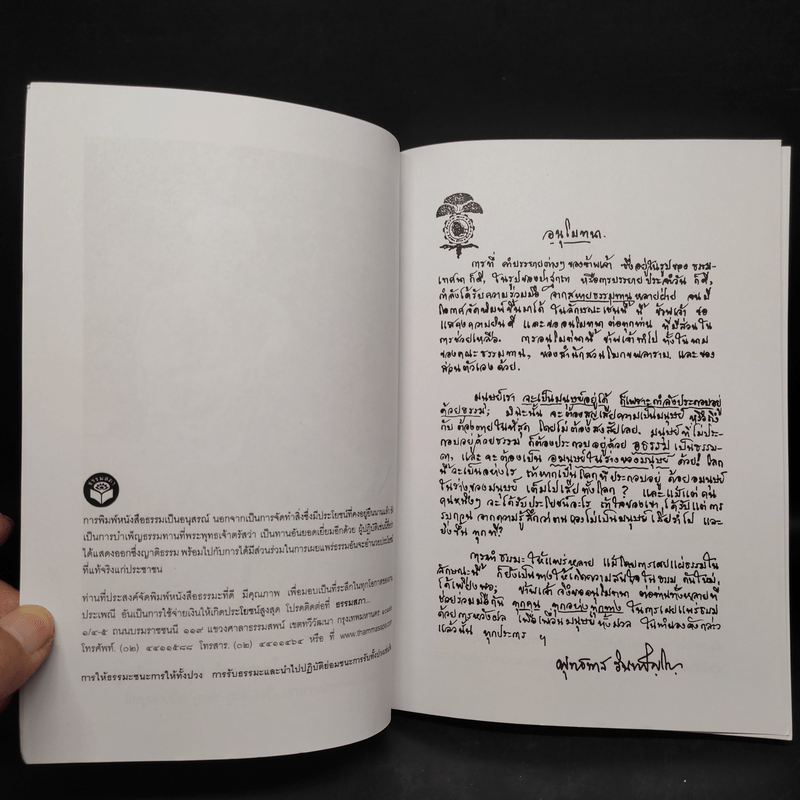 ธรรมสภา
การพิมพ์หนังสือธรรมเป็นอนุสรณ์ นอกจากเป็นการจัดทำสิ่งซึ่งมีประโยชน์ที่คงอยู่ยืนนานแล้ว ยัง
เป็นการบำเพ็ญธรรมทานที่พระพุทธเจ้าตรัสว่า เป็นทานอันยอดเยี่ยมอีกด้วย ผู้ปฏิบัติเช่นนี้ชื่อว่า
ได้แสดงออกซึ่งญาติธรรม พร้อมไปกับการได้มีส่วนร่วมในการเผยแพร่ธรรมอันจะอำนวยประโยชน์
ที่แท้จริงแก่ประชาชน
ท่านที่ประสงค์จัดพิมพ์หนังสือธรรมะที่ดี มีคุณภาพ เพื่อมอบเป็นที่ระลึกในทุกโอกาสของงาน
ประเพณี อันเป็นการใช้จ่ายเงินให้เกิดประโยชน์สูงสุด โปรดติดต่อที่ ธรรมสภา...
๑/๔-๕ ถนนบรมราชชนนี ๑๑๙ แขวงศาลาธรรมสพน์ เขตทวีวัฒนา กรุงเทพมหานคร
โทรศัพท์. (๐๒) ๔๔๑๑๕๘๘ โทรสาร. (๐๒) ๔๔๑๑๔๖๔ หรือ ที่
การให้ธรรมะชนะการให้ทั้งปวง การรับธรรมะและนำไปปฏิบัติย่อมชนะการรับทั้งปวง
อนุโมทนา.
การที่ คำบรรยายต่างๆ ของข้าพเจ้า ซึ่งอยู่ในรูปของ ธรรม-
เทศนา ก็ดี, ในรูปของปาฐกถา หรือการบรรยาย ประจำวัน ก็ดี,
กำลังได้รับความร่วมมือ จากสหายธรรมทาน หลายฝ่าย จนมี
โอกาสจัดพิมพ์ขึ้นมาได้ ในลักษณะเช่นนี้ นี้ ข้าพเจ้า ขอ
แสดงความยินดี และขออนุโมทนา ต่อทุกท่าน ที่มีส่วนใน
การช่วยเหลือ. การอนุโมทนานี้ ข้าพเจ้าทำไป ทั้งในนาม
ของคณะธรรมทาน, ของสำนักสวนโมกขพลาราม, และของ
ส่วนตัวเอง ด้วย.
มนุษย์เรา จะเป็นมนุษย์อยู่ได้ ก็เพราะกำลังประกอบอยู่
ด้วยธรรม; มิฉะนั้น จะต้องสูญเสียความเป็นมนุษย์ หรือถึง
กับ ต้องตายในที่สุด โดยไม่ต้องสงสัยเลย. มนุษย์ที่ไม่ประ-
กอบอยู่ด้วยธรรม ก็ต้องประกอบอยู่ด้วย อธรรม เป็นธรรม-
ดา, และจะต้องเป็น อมนุษย์ในร่างของมนุษย์ ด้วย. โลก
นี้จะเป็นอย่างไร ถ้าหากเป็นโลกที่ประกอบอยู่ ด้วยอมนุษย์
ในร่างของมนุษย์ เต็มไปเสียทั้งโลก? และแม้แต่คน
คนหนึ่งๆ จะได้รับประโยชน์อะไร ถ้าใจของเขา ได้รับแต่การ
รบกวน จากความรู้สึกว่าตนเองไม่เป็นมนุษย์ เสียทั่วไป และ
ยิ่งขึ้น ทุกที?
การทำธรรมะให้แพร่หลาย แม้โดยการเผยแผ่ธรรมใน
ลักษณะนี้ ก็ยิ่งเป็นทางให้เกิดความสนใจในธรรม กันใหม่,
ได้เพียงพอ; ข้าพเจ้า จึงขออนุโมทนา ต่อท่านทั้งหลายที่
ช่วยร่วมมือกัน ทุกคน ทุกอย่าง ทุกทาง ในการเผยแพร่ธรรม
ด้วยการหวังผล เพื่อเพื่อนมนุษย์ทั้งมวล ในทำนองดังกล่าว
แล้วนั้น ทุกประการ ฯ
พุทธทาส อินทปัญโญ